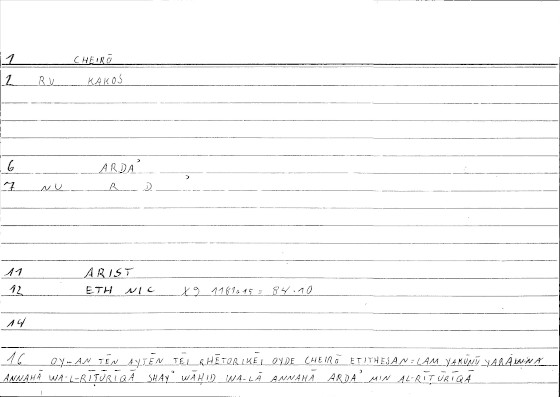 1 CHEIRŌ
2 RV KAKOS
6 ARDAʾ
7 NU R D ʾ
11 ARIST
12 ETH NIC X9 1181a15 = 84.10
14
16 OY-AN TĒN AYTĒN TĒI RHĒTORIKĒI OYDE CHEIRŌ ETITHESAN = LAM YAKŪNŪ YARAWNA
ANNAHĀ WA-L-RĪṬŪRĪQĀ SHAYʾ WĀḤID WA-LĀ ANNAHĀ ARDAʾ MIN AL-RĪṬŪRĪQĀ